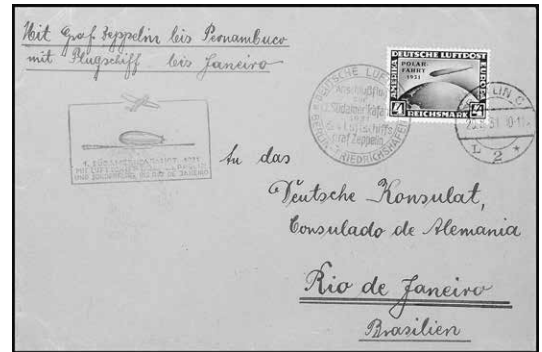 Mit Graf Zeppelin bis Pernambuco
mit Flugschiff bis Janeiro
DEUTSCHE LUFTPOST
POLAR-
FAHRT
1931
4
REICHSMARK
4
DEUTSCHE LUFT
Anschlußflug
zur
Südamerikafahrt
1931
d. Luftschiffs
Graf Zeppelin
BERLIN-FRIEDRICHSHAFEN
BERLIN C
2
1. SÜDAMERIKAFAHRT 1931
An das
Deutsche Konsulat,
Consulado de Alemania
Rio de Janeiro
Brasilien